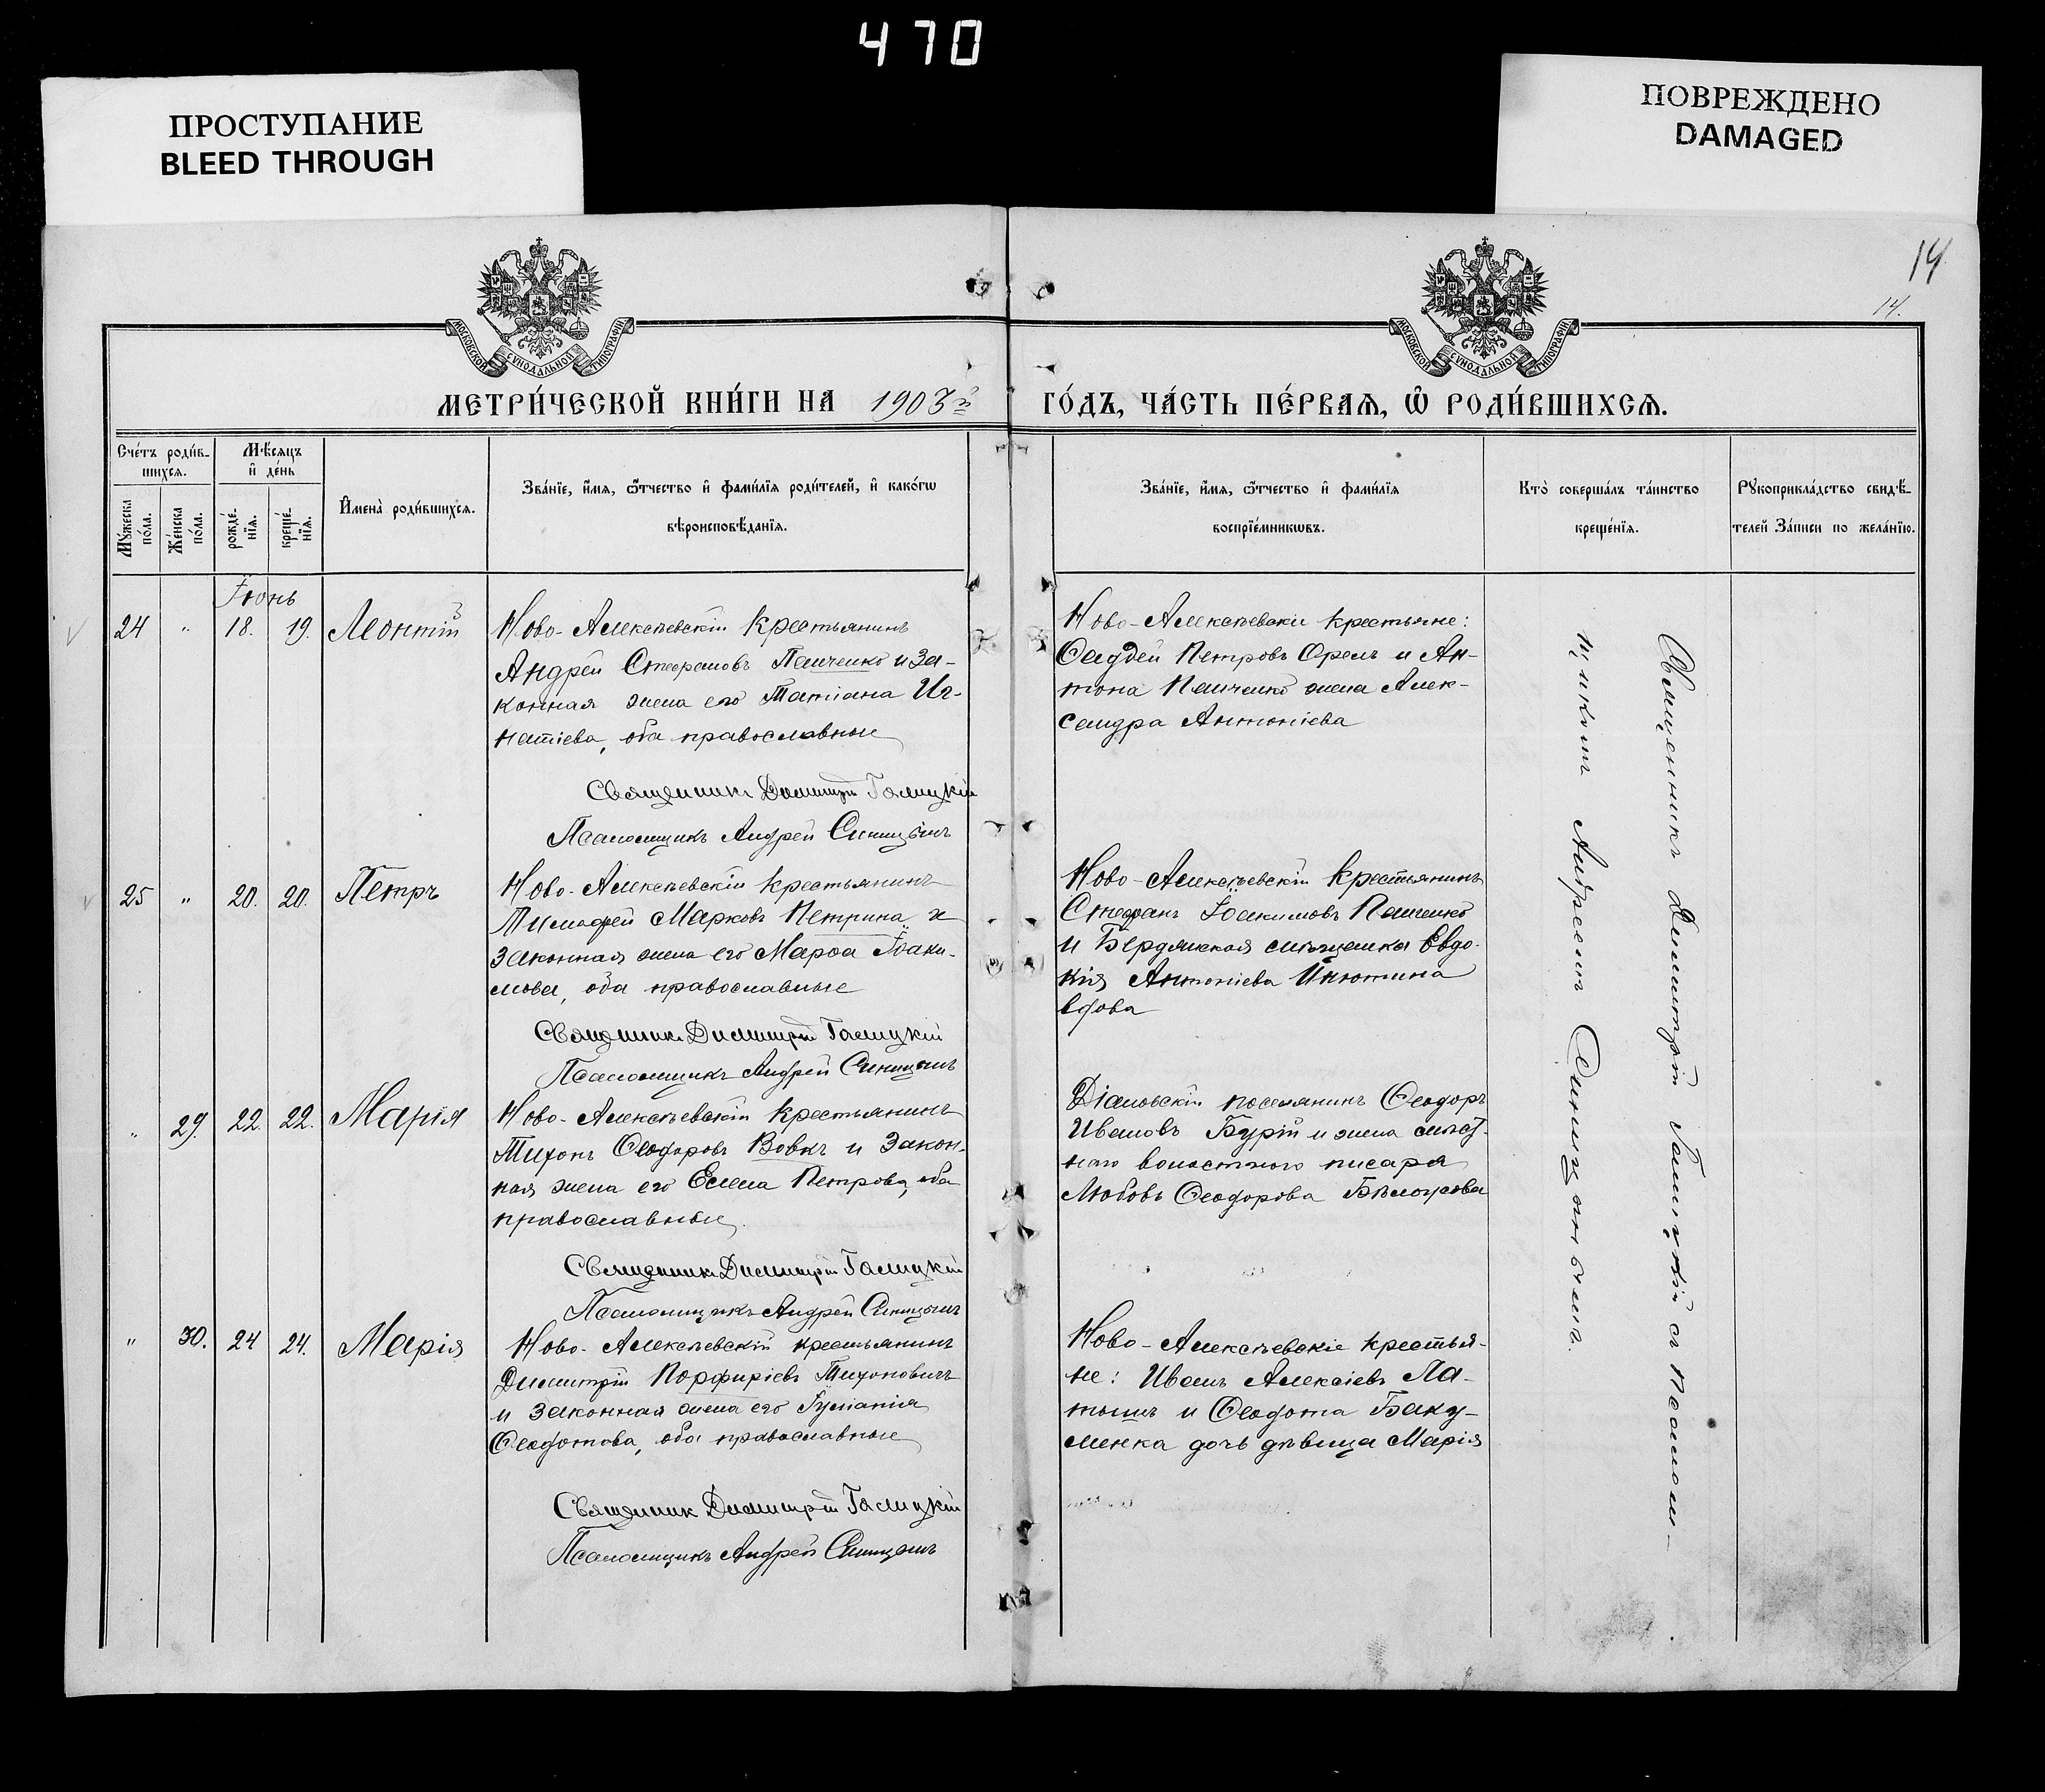 470
ПРОСТУПАНИЕ
BLEED THROUGH
ПОВРЕЖДЕНО
DAMAGED
14
14.
МОСКОВСКОЙ СѴНОДАЛЬНОЙ ТИПОГРАФІИ
МОСКОВСКОЙ СѴНОДАЛЬНОЙ ТИПОГРАФІИ
МЕТРИ́ЧЕСКОЙ КНИ́ГИ НА 1903й
ГО́ДЪ, ЧА́СТЬ ПЕ́РВАѦ, Ѽ РОДИ́ВШИХСѦ.
Сче́тъ роди́в-
шихсѧ.
Мѣ́сѧцъ
и҆ де́нь
Мꙋ́жеска по́ла.
Же́нска по́ла.
рожде́-нїѧ.
креще́-нїѧ.
И҆мена̀ роди́вшихсѧ.
Зва́нїе, и҆́мѧ, ѻ҆́тчество и҆ фами́лїѧ роди́телей, и҆ како́гѡ
вѣроисповѣ́данїѧ.
Зва́нїе, и҆́мѧ, ѻ҆́тчество и҆ фами́лїѧ
воспрїе́мникѡвъ.
Кто̀ соверша́лъ та́инство
креще́нїѧ.
Рꙋкоприкла́дство свидѣ́-
телей За́писи по жела́нїю.
Іюнь
24 " 18. 19. Леонтій
Ново-Алексѣевскій крестьянинъ
Андрей Стефановъ Панченко и за-
конная жена его Татіана Иг-
натіева, оба православные
Священникъ Димитрій Галицкій
Псаломщикъ Андрей Синицынъ
Ново-Алексѣевскіе крестьяне:
Ѳаддей Петровъ Орелъ и Ан-
тона Панченко жена Алек-
сандра Антоніева
25 " 20. 20. Петръ
Ново-Алексѣевскій крестьянинъ
Тимофей Марковъ Петрина и
законная жена его Марѳа Іоаки-
мова, оба православные
Священникъ Димитрій Галицкій
Псаломщикъ Андрей Синицынъ
Ново-Алексѣевскій крестьянинъ
Стефанъ Іоакимовъ Панченко
и Бердянская мѣщанка Евдо-
кія Антоніева
вдова
" 29. 22. 22. Марія
Ново-Алексѣевскій крестьянинъ
Тихонъ Ѳеодоровъ Вовкъ и закон-
ная жена его Елена Петрова, оба
православные
Священникъ Димитрій Галицкій
Псаломщикъ Андрей Синицынъ
поселянинъ Ѳеодоръ
Ивановъ Бурій и жена мѣст-
наго волостного писаря
Любовь Ѳеодорова Бѣлоусова
" 30. 24 24. Марія
Ново-Алексѣевскій крестьянинъ
Димитрій Порфиріевъ Тихоновичъ
и законная жена его Іуліанія
Ѳеодотова, оба православные
Священникъ Димитрій Галицкій
Псаломщикъ Андрей Синицынъ
Ново-Алексѣевскіе крестья-
не: Иванъ Алексіевъ Ла-
тышъ и Ѳеодота Баку-
менка дочь дѣвица Марія
Священникъ Димитрій Галицкій съ псалом-
щикомъ Андреемъ Синицынымъ.